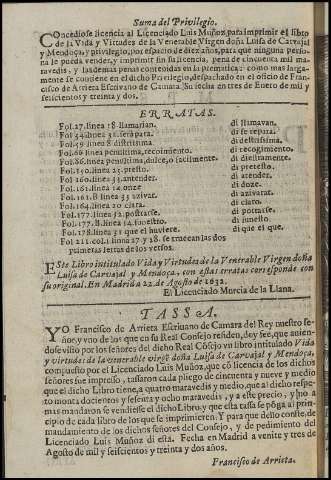 Suma del Privilegio.
Concediose licencia al Licenciado Luis Muñoz, para imprimir el libro
de la Vida y Virtudes de la Venerable Virgen doña Luisa de Carvajal
y Mendoça, y privilegio, por espacio de diez años, para que ninguna perso-
na le pueda vender, y imprimir sin su licencia, pena de cincuenta mil ma-
ravedis, y las demas penas contenidas en la prematica: como mas larga-
mente se contiene en el dicho Privilegio, despachado en el oficio de Fran-
cisco de Arrieta Escrivano de Camara. Su fecha en tres de Enero de mil y
seiscientos y treinta y dos.
ERRATAS.
Fol. 27. linea 18 llamarian. di llamavan.
Fol. 34. linea 31. será para. di de se repara.
Fol. 59. linea 8 distrissima. di destrissima.
Fol. 66 linea penultima, reconimiento. di recogimiento.
Fol. 86. linea penultima, dulce, o facilmente. di diestramente.
Fol. 150. linea 23. presto. di pretexto.
Fol. 160. linea 33. antender. di atender.
Fol. 161. linea 14 onze di doze.
Fol. 161. B linea 33 avivar. di azivarat.
Fol. 164. linea 20 citra. di claro.
Fol. 177. linea 32. postrarse. di potrarse.
Fol. 177. B. linea 14. funestro. di funesto.
Fol. 178. linea 31 que el huviere. di que el que.
Fol 211. col. 1 linea 27 y 28. se truecan las dos
primeras letras de los versos.
Este Libro intitulado Vida y Virtudes de la Venerable Virgen doña
Luisa de Carvajal y Mendoça, con estas erratas corresponde con
su original. En Madrid a 22 de Agosto de 1632.
El Licenciado Murcia de la Llana.
TASSA.
YO Francisco de Arrieta Escrivano de Camara del Rey nuestro se-
ñor, y vno de los que en su Real Consejo residen, doy fee, que auien-
dose visto por los señores del dicho Real Consejo vn libro intitulado Vida
y virtudes de la venerable virgē doña Luisa de Carvajal y Mendoça,
compuesto por el Licenciado Luis Muñoz, que cō licencia de los dichos
señores fue impresso, tassaron cada pliego de cincuenta y nueve y medio
que el dicho Libro tiene, a quatro maravedis y medio, que al dicho respe-
to monta docientos y sesenta y ocho maravedis, y a este precio, y no a
mas mandaron se vendiesse el dicho Libro, y que esta tassa se pōga al prin-
cipio de cada libro de los que se imprimieren. Y para que dello conste, de
mandamiento de los dichos señores del Consejo, y de pedimiento del
Licenciado Luis Muñoz di esta. Fecha en Madrid a veinte y tres de
Agosto de mil y seiscientos y treinta y dos años.
Francisco de Arrieta.